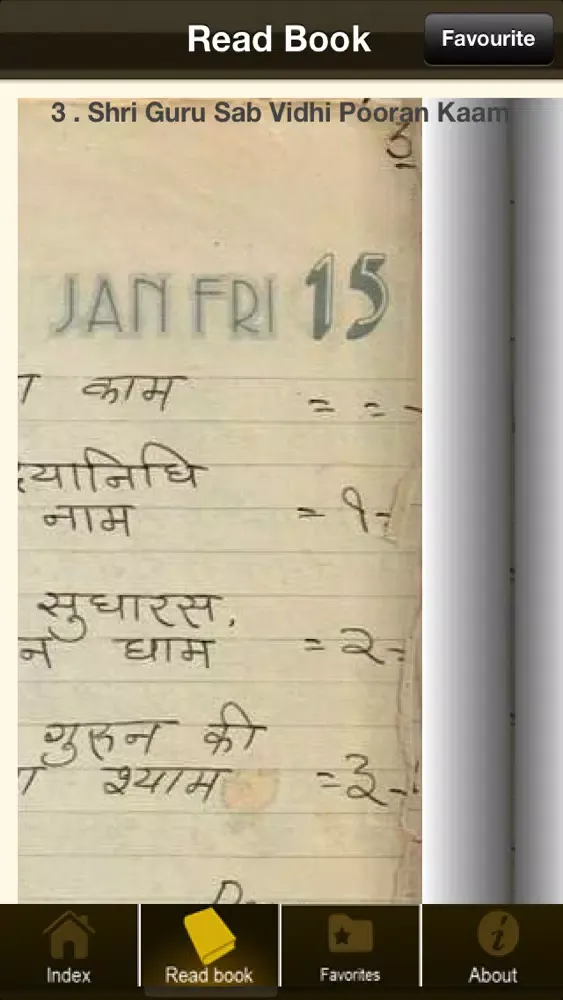 Read Book
Favourite
3 . Shri Guru Sab Vidhi Pooran Kaam
3
JAN FRI 15
काम = = -
दयानिधि
नाम = १ =
सुधारस,
न धाम = २ =
गुरून की
श्याम = ३ -
Index
Read book
Favorites
About